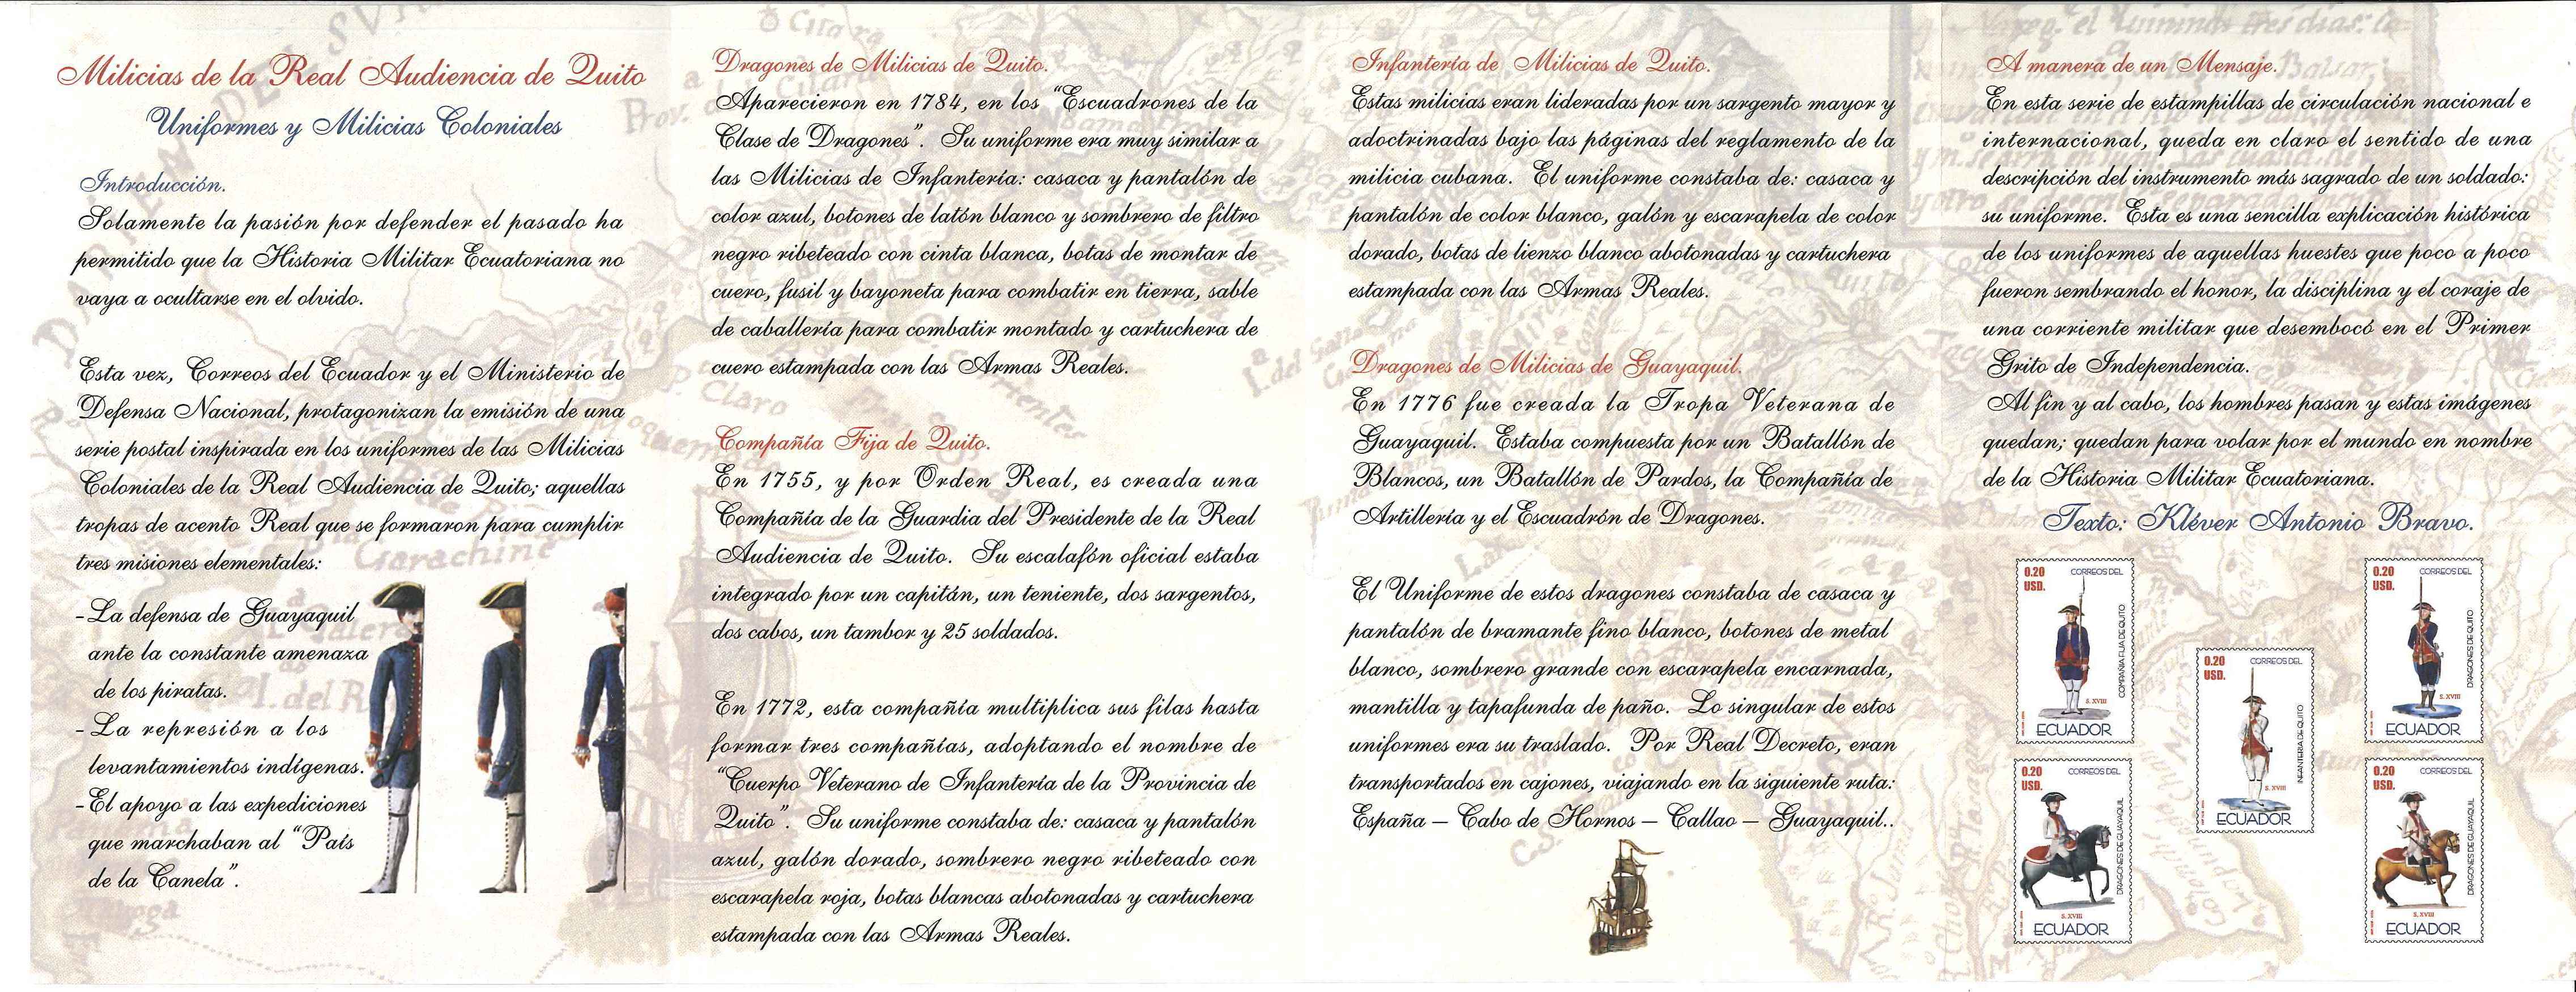 Milicias de la Real Audiencia de Quito
Uniformes y Milicias Coloniales
Introducción.
Solamente la pasión por defender el pasado ha
permitido que la Historia Militar Ecuatoriana no
vaya a ocultarse en el olvido.
Esta vez, Correos del Ecuador y el Ministerio de
Defensa Nacional, protagonizan la emisión de una
serie postal inspirada en los uniformes de las Milicias
Coloniales de la Real Audiencia de Quito; aquellas
tropas de acento Real que se formaron para cumplir
tres misiones elementales:
-La defensa de Guayaquil
ante la constante amenaza
de los piratas.
-La represión a los
levantamientos indígenas.
-El apoyo a las expediciones
que marchaban al "País
de la Canela".
Dragones de Milicias de Quito.
Aparecieron en 1784, en los "Escuadrones de la
Clase de Dragones". Su uniforme era muy similar a
las Milicias de Infantería: casaca y pantalón de
color azul, botones de latón blanco y sombrero de filtro
negro ribeteado con cinta blanca, botas de montar de
cuero, fusil y bayoneta para combatir en tierra, sable
de caballería para combatir montado y cartuchera de
cuero estampada con las Armas Reales.
Compañía Fija de Quito.
En 1755, y por Orden Real, es creada una
Compañía de la Guardia del Presidente de la Real
Audiencia de Quito. Su escalafón oficial estaba
integrado por un capitán, un teniente, dos sargentos,
dos cabos, un tambor y 25 soldados.
En 1772, esta compañía multiplica sus filas hasta
formar tres compañías, adoptando el nombre de
"Cuerpo Veterano de Infantería de la Provincia de
Quito". Su uniforme constaba de: casaca y pantalón
azul, galón dorado, sombrero negro ribeteado con
escarapela roja, botas blancas abotonadas y cartuchera
estampada con las Armas Reales.
Infantería de Milicias de Quito.
Estas milicias eran lideradas por un sargento mayor y
adoctrinadas bajo las páginas del reglamento de la
milicia cubana. El uniforme constaba de: casaca y
pantalón de color blanco, galón y escarapela de color
dorado, botas de lienzo blanco abotonadas y cartuchera
estampada con las Armas Reales.
Dragones de Milicias de Guayaquil.
En 1776 fue creada la Tropa Veterana de
Guayaquil. Estaba compuesta por un Batallón de
Blancos, un Batallón de Pardos, la Compañía de
Artillería y el Escuadrón de Dragones.
El Uniforme de estos dragones constaba de casaca y
pantalón de bramante fino blanco, botones de metal
blanco, sombrero grande con escarapela encarnada,
mantilla y tapafunda de paño. Lo singular de estos
uniformes era su traslado. Por Real Decreto, eran
transportados en cajones, viajando en la siguiente ruta:
España – Cabo de Hornos – Callao – Guayaquil..
A manera de un Mensaje.
En esta serie de estampillas de circulación nacional e
internacional, queda en claro el sentido de una
descripción del instrumento más sagrado de un soldado:
su uniforme. Esta es una sencilla explicación histórica
de los uniformes de aquellas huestes que poco a poco
fueron sembrando el honor, la disciplina y el coraje de
una corriente militar que desembocó en el Primer
Grito de Independencia.
Al fin y al cabo, los hombres pasan y estas imágenes
quedan; quedan para volar por el mundo en nombre
de la Historia Militar Ecuatoriana.
Texto: Kléver Antonio Bravo.
0.20
USD.
CORREOS DEL
COMPAÑIA FIJA DE QUITO
S. XVIII
ECUADOR
0.20
USD.
CORREOS DEL
DRAGONES DE QUITO
S. XVIII
ECUADOR
0.20
USD.
CORREOS DEL
INFANTERIA DE QUITO
S. XVIII
ECUADOR
0.20
USD.
CORREOS DEL
DRAGONES DE GUAYAQUIL
S. XVIII
ECUADOR
0.20
USD.
CORREOS DEL
DRAGONES DE GUAYAQUIL
S. XVIII
ECUADOR
Garachine
P. Claro